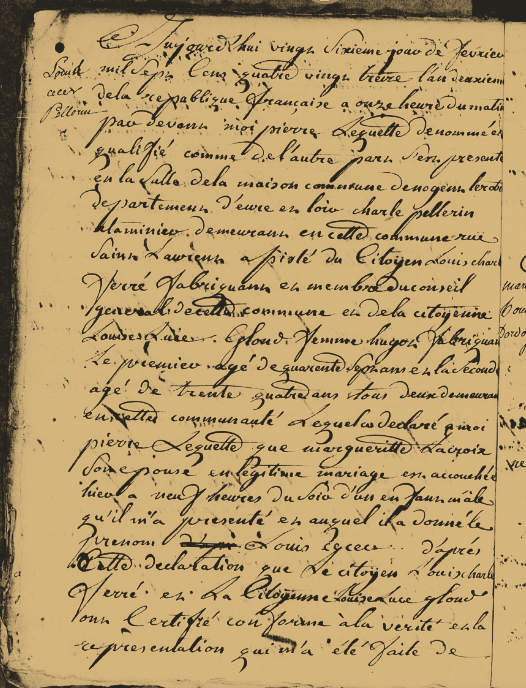 Louis
Pellerin
Ce Jujourd'hui vingt Sixieme jour de fevrier
mil Sept Cens quatre vingt treize l'an deuxiem
dela republique française a onze heure du matin
par devant moi pierre Leguette denommé et
qualifié comme de l'autre part S'en presenté
en la Salle dela maison commune denogent lerotro
departement d'eure en loir charle pellerin
etaminier demeurant en cette commune rue
Saint Laurent assisté du Citoyen Louis charl
ferré fabriquant en membre du conseil
general de cette commune en dela citoyenne
Louise Luce gloud femme hugon fabriquan
Le premier agé de quarente Sept ans en la Seconde
agé de trente quatre ans tous deux demeuran
en cette communauté Lequel a declaré a moi
pierre Leguette que margueritte Lacroix
Son epouse en legitime mariage est accouchée
hier a neuf heures du Soir d'un enfant mâle
qu'il m'a presenté en auquel il a donné le
prenom Louis d'aprés
Cette declaration que Le citoyen Louis charle
ferré en La Citoyenne Louise Luce gloud
ont Certifié conforme a la verité en la
representation qui m'a été faite de